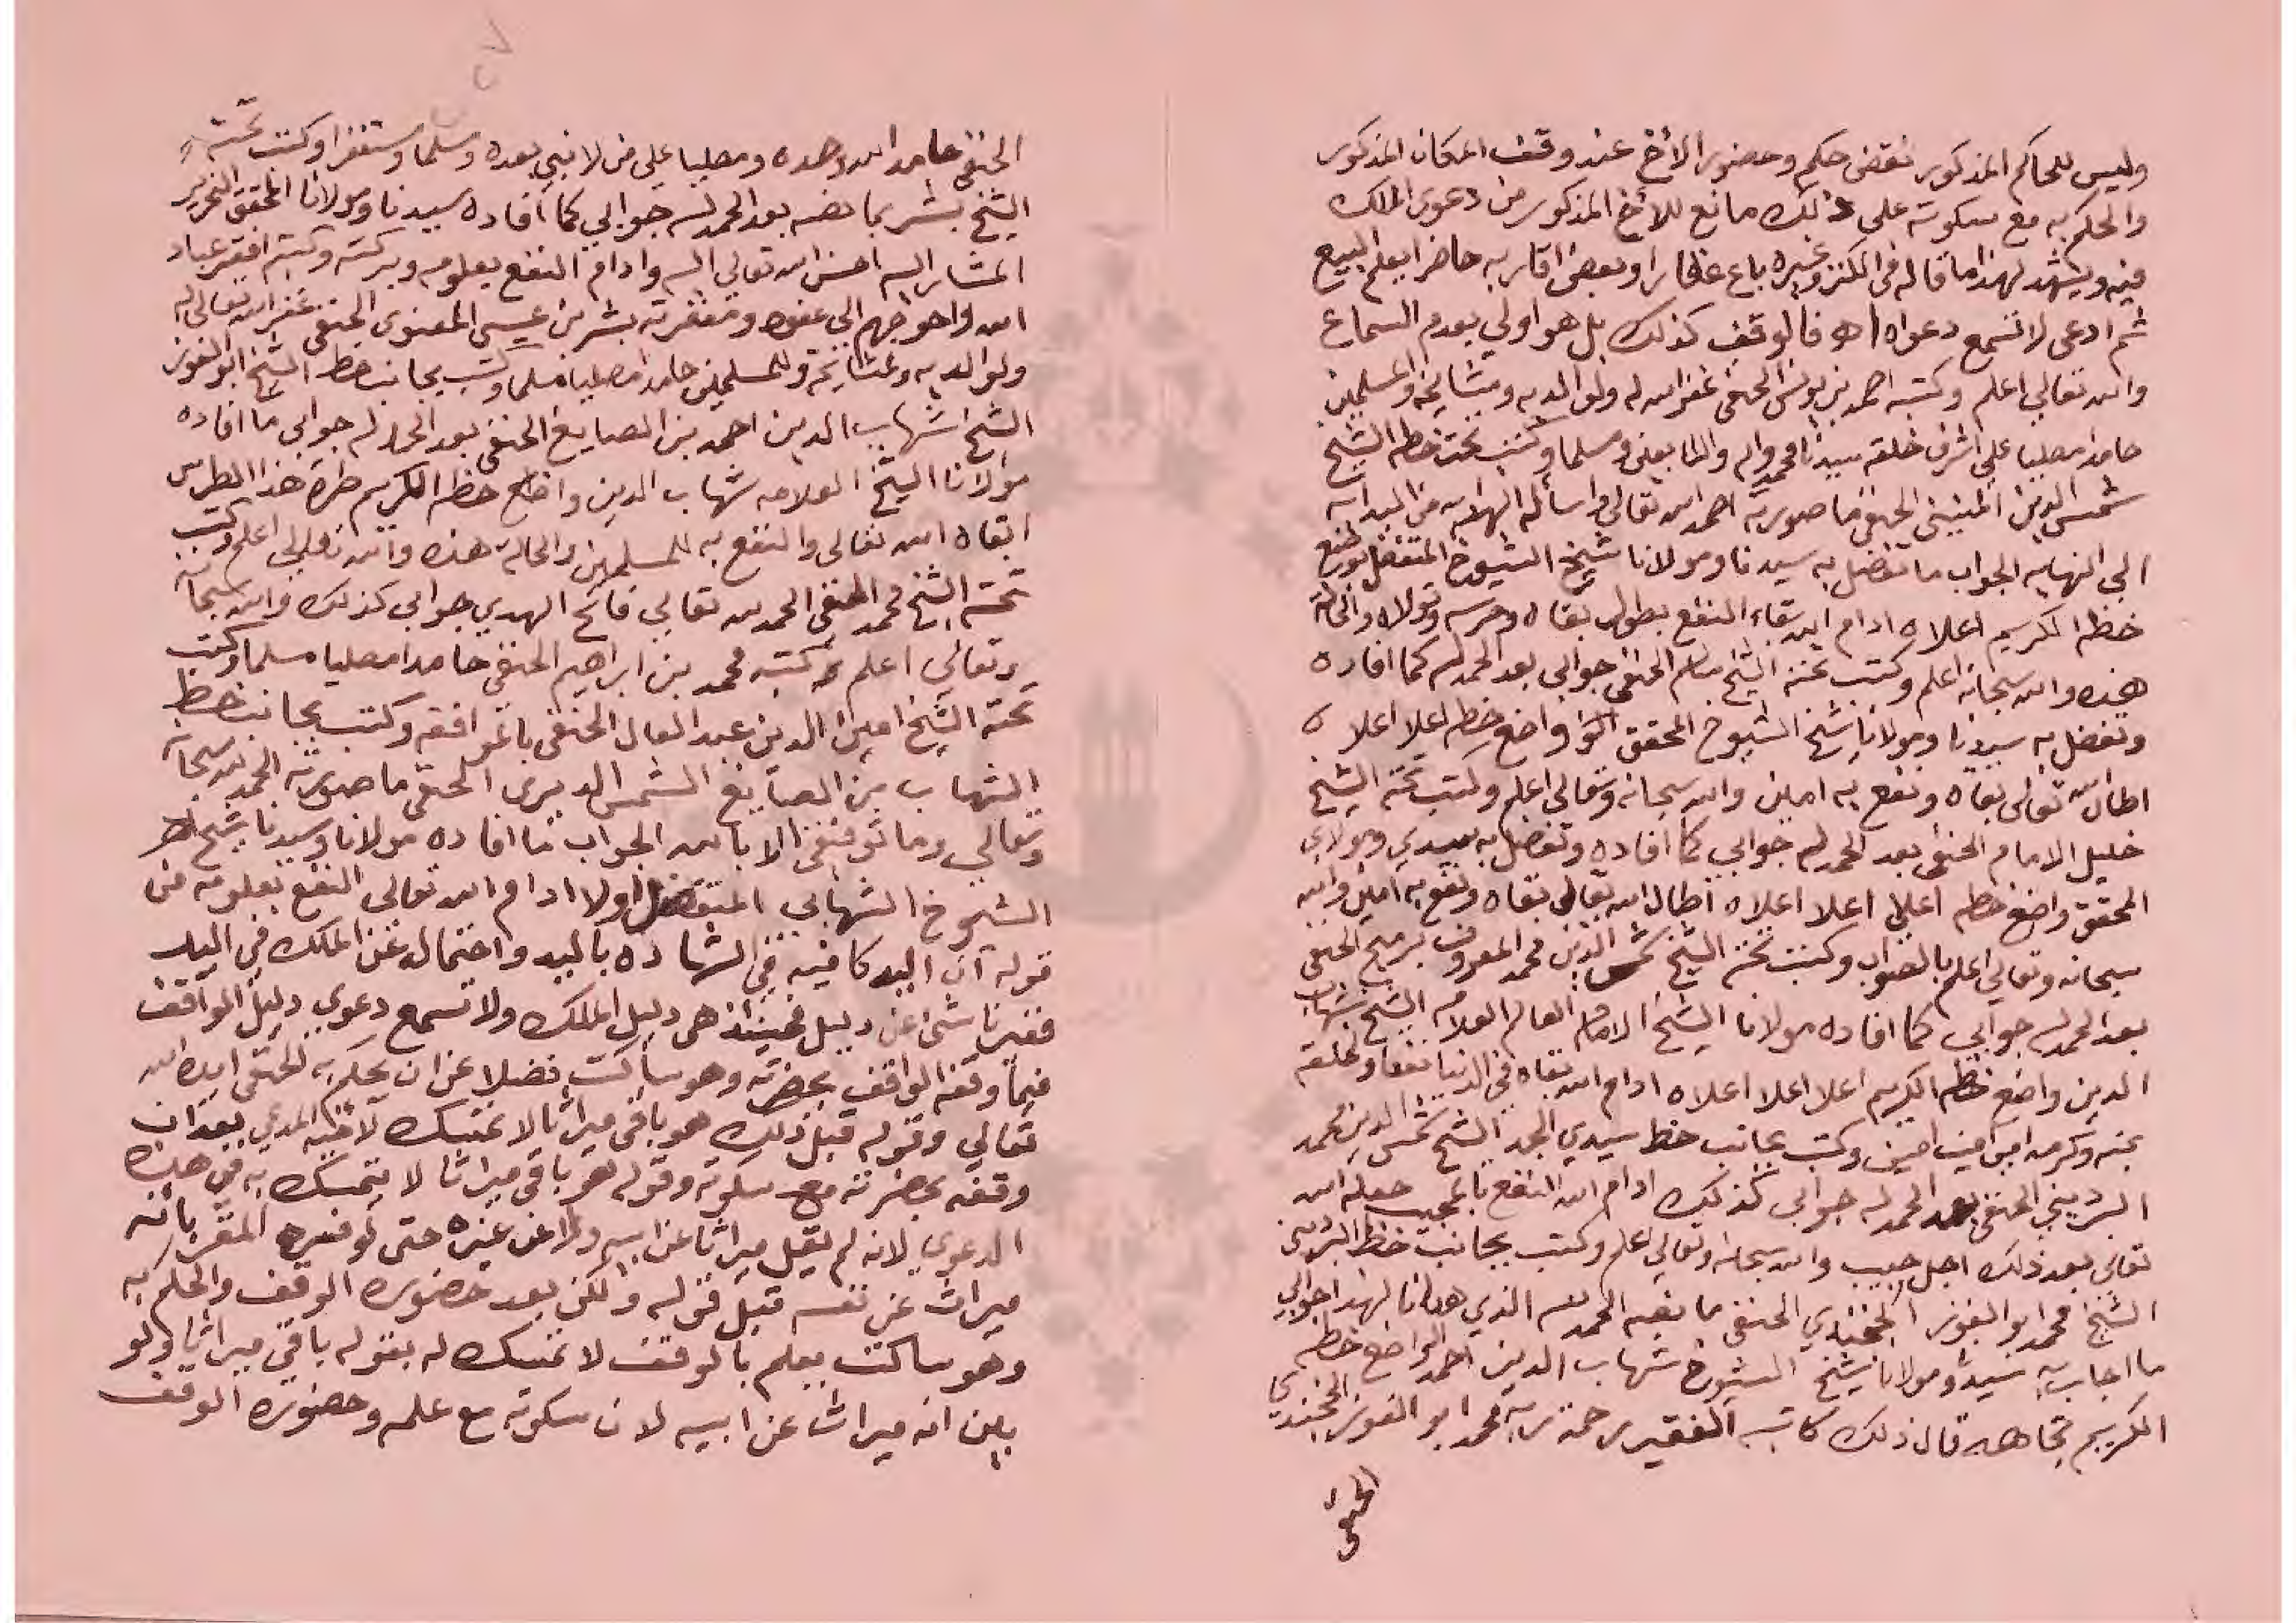 وليس للحاكم المذكور نقض حكمه وحضور الأخ عند وقف المكان المذكور
والحكم به مع سكوته على ذلك مانع للأخ المذكور من دعوى الملك
فيه ويشهد لهذا ما قاله في الكنز وغيره باع عقارا وبعض اقاربه حاضر يعلم البيع
ثم ادعى لا تسمع دعواه اه فالوقف كذلك بل هو اولي بعدم السماع
والله تعالي اعلم وكتبه احمد بن يونس الحنفي غفر الله له ولوالديه ومشايخه والمسلمين
حامدا مصليا علي اشرف خلقه سيدنا محمد واله والتابعين ومسلما وكتب تحت خطه الشيخ
شمس الدين الحنفي ما صورته احمد الله تعالي واسأله الهداية من البداية
الي النهاية الجواب ما تفضل به سيدنا ومولانا شيخ الشيوخ المتفضل بوضع
خطه الكريم اعلاه ادام الله بقاء النفع بطول بقاه وحرسه وتولاه والحالة
هذه والله سبحانه اعلم وكتب تحته الشيخ الحنفي جوابي بعد الحمد لله كما افاده
وتفضل به سيدنا ومولانا شيخ الشيوخ المحقق واضع خطه اعلا اعلاه
اطال الله تعالى بقاه ونفع به امين والله سبحانه وتعالي اعلم وكتب تحته الشيخ
خليل الامام الحنفي بعد الحمد لله جوابي كما افاده وتفضل به سيدي ومولاي
المحقق واضع خطه اعلا اعلا اعلاه اطال الله تعالى بقاه ونفع به امين والله
سبحانه وتعالي اعلم بالصواب وكتب تحته الشيخ شمس الدين محمد المعروف الحنفي
بعد الحمد لله جوابي كما افاده مولانا الشيخ الامام العالم العلامه الشيخ شهاب
الدين واضع خطه الكريم اعلا اعلا اعلاه ادام الله بقاه في الدنيا نفعا لخلقه
بمنه وكرمه امين امين امين وكتب بجانب خط سيدي الجد الشيخ شمس الدين محمد
الحنفي بعد الحمد لله جوابي كذلك ادام الله النفع بالمجيب جعله الله
تعالى بعد ذلك اجل حبيب والله سبحانه وتعالي اعلم وكتب بجانب خط
الشيخ محمد ابو الفوز الخجندي الحنفي ما نصه الحمد لله الذي هدانا لهذا جوابي
ما اجاب به سيدنا ومولانا شيخ الشيوخ شهاب الدين احمد الواضع خطه
الكريم تجاهه قال ذلك كاتبه الفقير رحمة ربه محمد ابو الفوز الخجندي
الحنفي
الحنفي حامدا الله وحده ومصليا علي من لا نبي بعده ومسلما ومستغفرا وكتب تحته
الشيخ بشر بما نصه بعد الحمد لله جوابي كما افاده سيدنا ومولانا المحقق النحرير
المشار اليه احسن الله تعالي اليه وادام النفع بعلومه وبركته وكتبه افقر عباد
الله واحوجهم الي عفوه ومغفرته بشر بن عيسى الحنفي غفر الله تعالى له
ولوالديه ومشايخه وللمسلمين حامدا مصليا مسلما وكتب بجانب خط الشيخ ابو الفوز
الشيخ شهاب الدين احمد بن الصايغ الحنفي بعد الحمد لله جوابي ما افاده
مولانا الشيخ العلامه شهاب الدين واضع خطه الكريم طرة هذا الطرس
ابقاه الله تعالى والنفع به للمسلمين والحالة هذه والله تعالى اعلم وكتب
تحته الشيخ محمد الحنفي الحمد لله تعالي فاتح الهدي جوابي كذلك والله سبحانه
وتعالي اعلم وكتبه محمد بن ابراهيم الحنفي حامدا مصليا مسلما وكتب
تحته الشيخ امين الدين عبد العال الحنفي بالموافقه وكتب بجانب خط
الشهاب بن الصايغ الشمس الديري الحنفي ما صورته الحمد لله سبحانه
وتعالي وما توفيقي الا بالله الجواب ما افاده مولانا وسيدنا شيخ
الشيوخ الشهابي المتفضل اولا ادام الله تعالى النفع بعلومه من
قوله ان اليد كافية في الشهادة باليد واحتمال عن الملك في اليد
فغير ناشئ عن دليل فحينئذ هي دليل الملك ولا تسمع دعوى دليل الواقف
فيما وقفه الواقف بحضرته وهو ساكت فضلا عن ان يحكم به الحنفي ايده الله
تعالي وقوله قبل ذلك هو باقي ميراثا لا تمسك لاخيه المدعي بعد ان
وقفه بحضرته مع سكوته وقوله هو باقي ميراثا لا يتمسك به في هذه
الدعوي لانه لم يقل ميراثا عن ابيه ولا عن غيره حتى لو فسره المقر بانه
ميراث عن نفسه قبل قوله ولكن بعد حضوره الوقف والحكم به
وهو ساكت يعلم بالوقف لا تمسك له بقوله باقي ميراثا ولو
بين انه ميراث عن ابيه لان سكوته مع علمه وحضوره الوقف